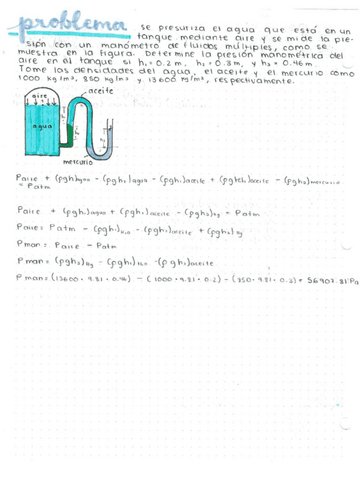 problema se presuriza el agua que está en un
tanque mediante aire y se mide la pre-
sión con un manómetro de fluidos múltiples, como se
muestra en la figura. Determine la presión manométrica del
aire en al tanque si h₁ = 0.2 m, h₂ = 0.3m, y h₃ = 0.46m.
Tome las densidades del agua, el aceite y el mercurio como
1000 kg/m³, 850 kg/m³ y 13600 kg/m³, respectivamente.
aceite
aire
agua
mercurio
Paire + (ρgh₁)agua - (ρgh₁)agua - (ρgh₁)aceite + (ρgh₂)aceite - (ρgh₃)mercurio
= Patm
Paire + (ρgh₁)agua + (ρgh₂)aceite - (ρgh₃)Hg = Patm
Paire = Patm - (ρgh₁)H₂O - (ρgh₂)aceite + (ρgh₃)Hg
Pman = Paire - Patm
Pman = (ρgh₃)Hg - (ρgh₁)H₂O - (ρgh₂)aceite
Pman = (13600 · 9.81 · 0.46) - (1000 · 9.81 · 0.2) - (850 · 9.81 · 0.2) = 56907.81 Pa